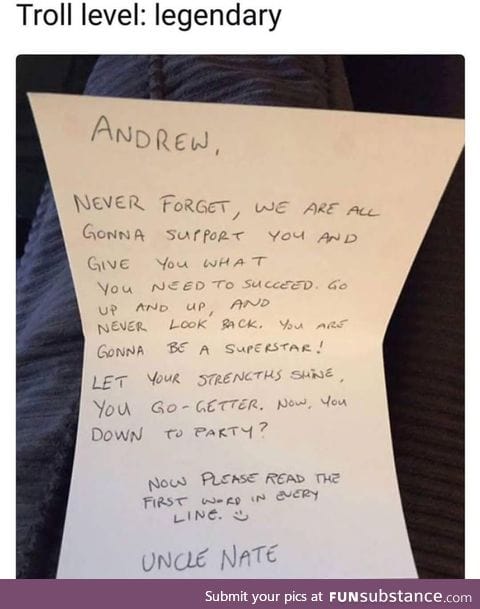 Troll level: legendary
ANDREW,
NEVER FORGET, WE ARE ALL
GONNA SUPPORT YOU AND
GIVE YOU WHAT
YOU NEED TO SUCCEED. GO
UP AND UP, AND
NEVER LOOK BACK. YOU ARE
GONNA BE A SUPERSTAR!
LET YOUR STRENGTHS SHINE,
YOU GO-GETTER. NOW, YOU
DOWN TO PARTY?
NOW PLEASE READ THE
FIRST WORD IN EVERY
LINE.
UNCLE NATE
Submit your pics at FUNsubstance.com